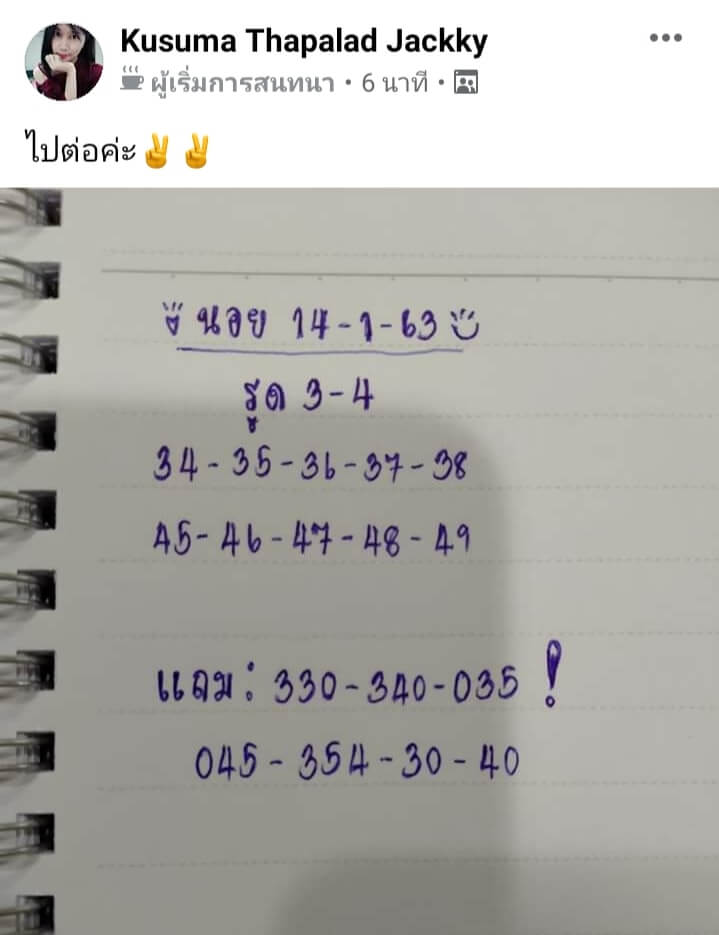 Kusuma Thapalad Jackky
ผู้เริ่มการสนทนา • 6 นาที •
ไปต่อค่ะ✌️✌️
นอย 14-1-63
รูด 3-4
34-35-36-37-38
45-46-47-48-49
แถม: 330-340-035 !
045-354-30-40